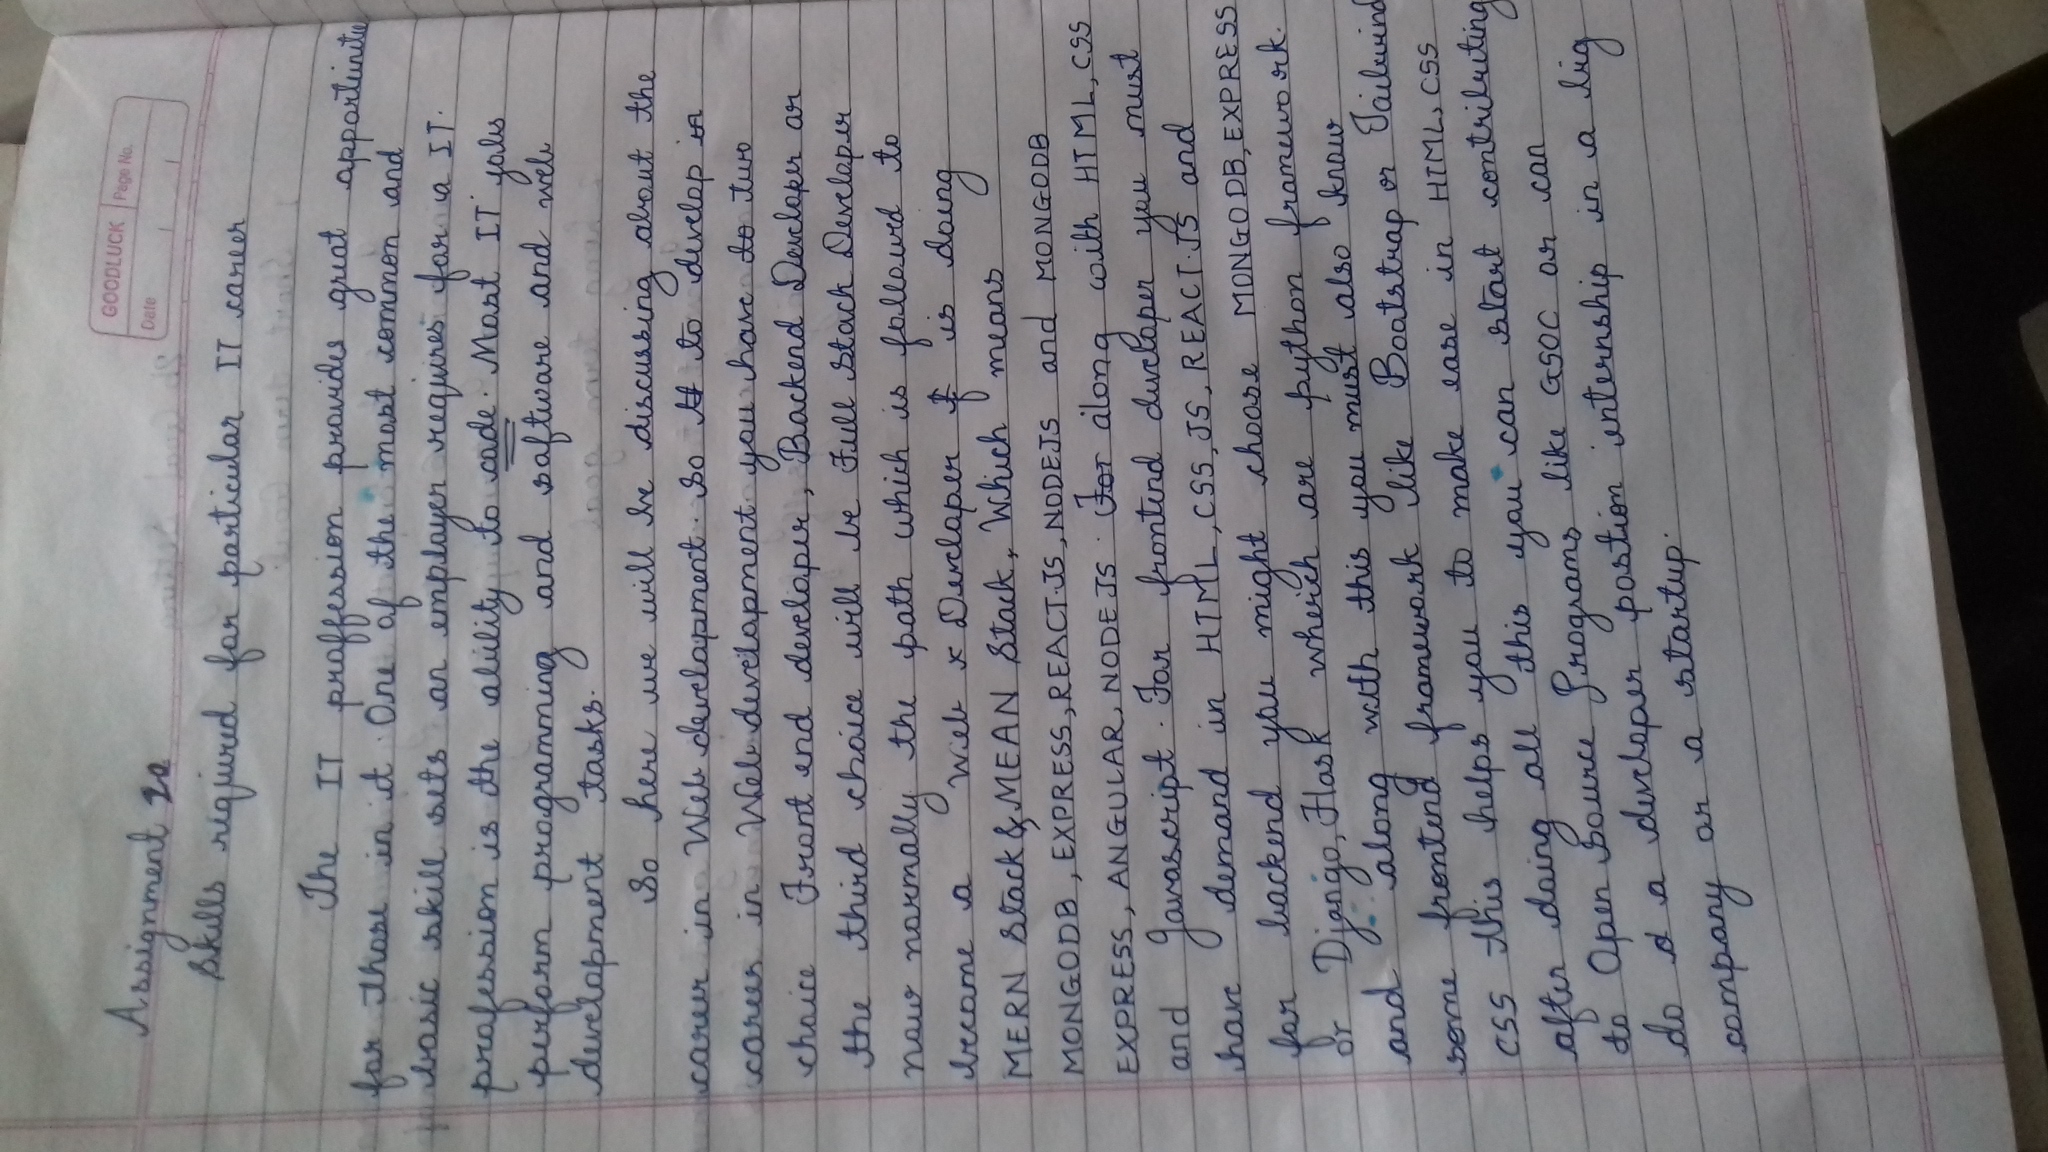 GOODLUCK Page No.
Date
Assignment 2a
Skills required for particular IT career
The IT proffession provides great opportunitie
for those in it. One of the most common and
basic skill sets an employer requires for a IT.
profession is the ability to code. Most IT jobs
perform programming and software and web
development tasks.
So here we will be discussing about the
career in Web development. So to develop
career in Web development you have two
choice Front end developer, Backend Developer or
the third choice will be Full Stack Developer
now normally the path which is followed to
become a Web Developer is doing
MERN Stack & MEAN Stack, Which means
MONGODB, EXPRESS, REACT.JS, NODEJS and MONGODB
EXPRESS, ANGULAR, NODEJS. along with HTML, CSS
and Javascript. For frontend developer you must
have demand in HTML, CSS, JS, REACT.JS and
for backend you might choose MONGODB, EXPRESS
or Django, Flask wherich are python framework.
and along with this you must also know
some frontend framework like Bootstrap or Tailwind
CSS this helps you to make ease in HTML, CSS
after doing all this you can start contributing
to Open Source Programs like GSOC or can
do a developer postion internship in a big
company or a startup.